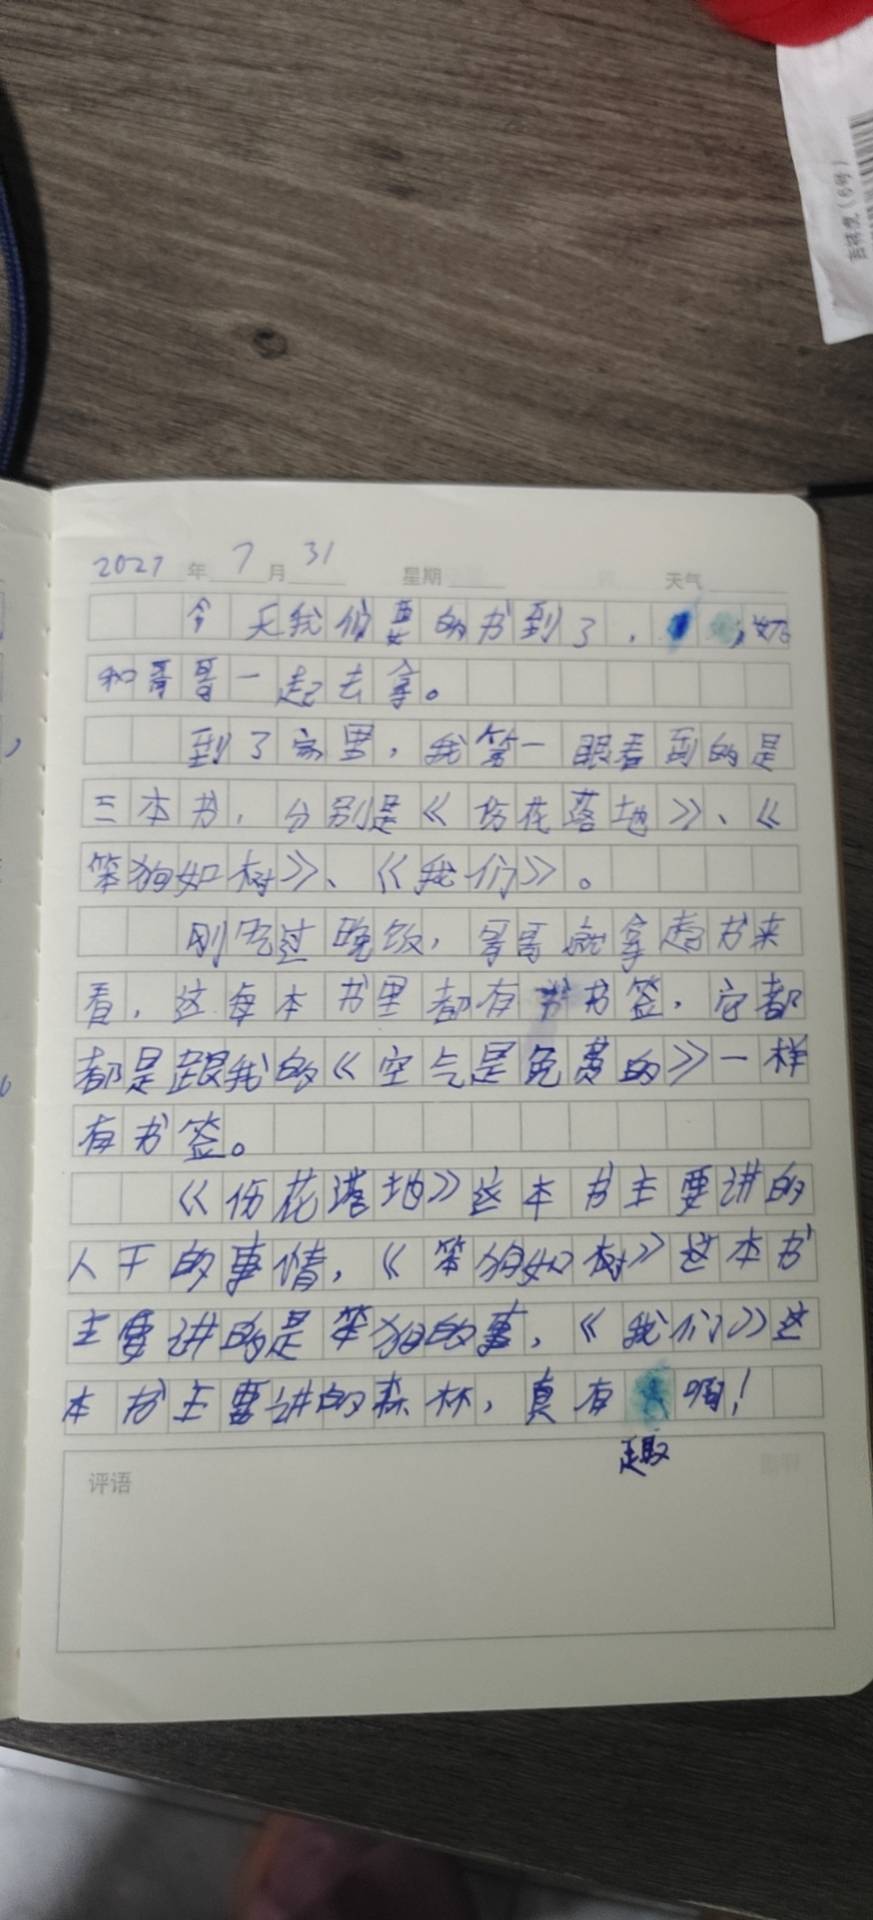 吉祥发（6号）
2021年7月31 星期 天气
今天我们要的书到了，妈
和哥哥一起去拿。
到了家里，我第一眼看到的是
三本书，分别是《伤花落地》、《
笨狗如树》、《我们》。
刚吃过晚饭，哥哥就拿起书来
看，这每本书里都有书签，它都
都是跟我的《空气是免费的》一样
有书签。
《伤花落地》这本书主要讲的
人干的事情，《笨狗如树》这本书
主要讲的是笨狗的事，《我们》这
本书主要讲的森林，真有啊！
趣
评语